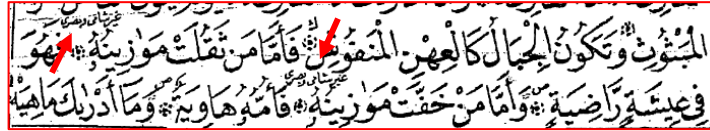 غير شامي وبصري
الْمَبْثُوثِ وَتَكُونُ الْجِبَالُ كَالْعِهْنِ الْمَنفُوشِ فَأَمَّا مَن ثَقُلَتْ مَوَازِينُهُ فَهُوَ
غير شامي وبصري
فِي عِيشَةٍ رَّاضِيَةٍ وَأَمَّا مَنْ خَفَّتْ مَوَازِينُهُ فَأُمُّهُ هَاوِيَةٌ وَمَا أَدْرَاكَ مَاهِيَهْ